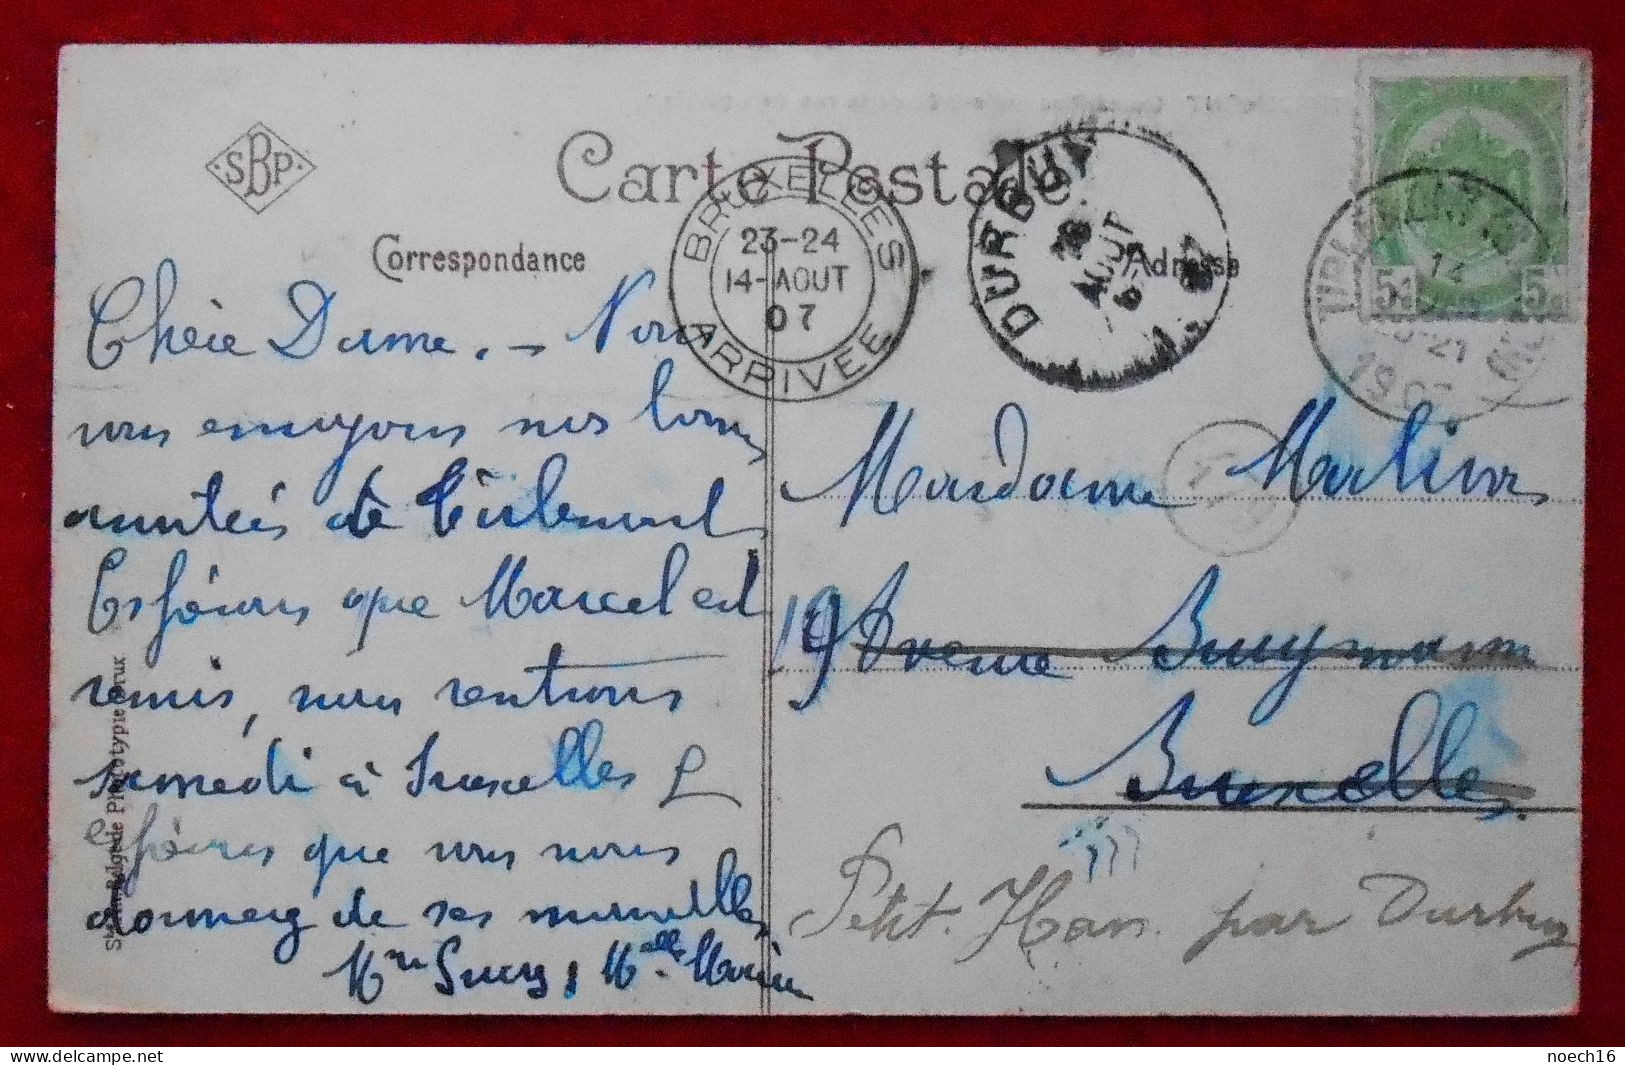 SBP
Carte Postale
Correspondance
Adresse
BRUXELLES
23-24
14-AOUT
07
ARRIVEE
DURBUY
AOUT
14
1907
5
5
Chère Dame. – Nous
vous envoyons nos bonnes
amitiés de Tirlemont
Espérons que Marcel est
remis, nous rentrons
samedi à Bruxelles
Espérons que vous nous
donnerez de ses nouvelles
Mme Lucy, Melle Maria
Madame Martin
19 Avenue Brugmann
Bruxelles
Petit. Han. par Durbuy
Sté Anme Belge de Phototypie Brux
noech16